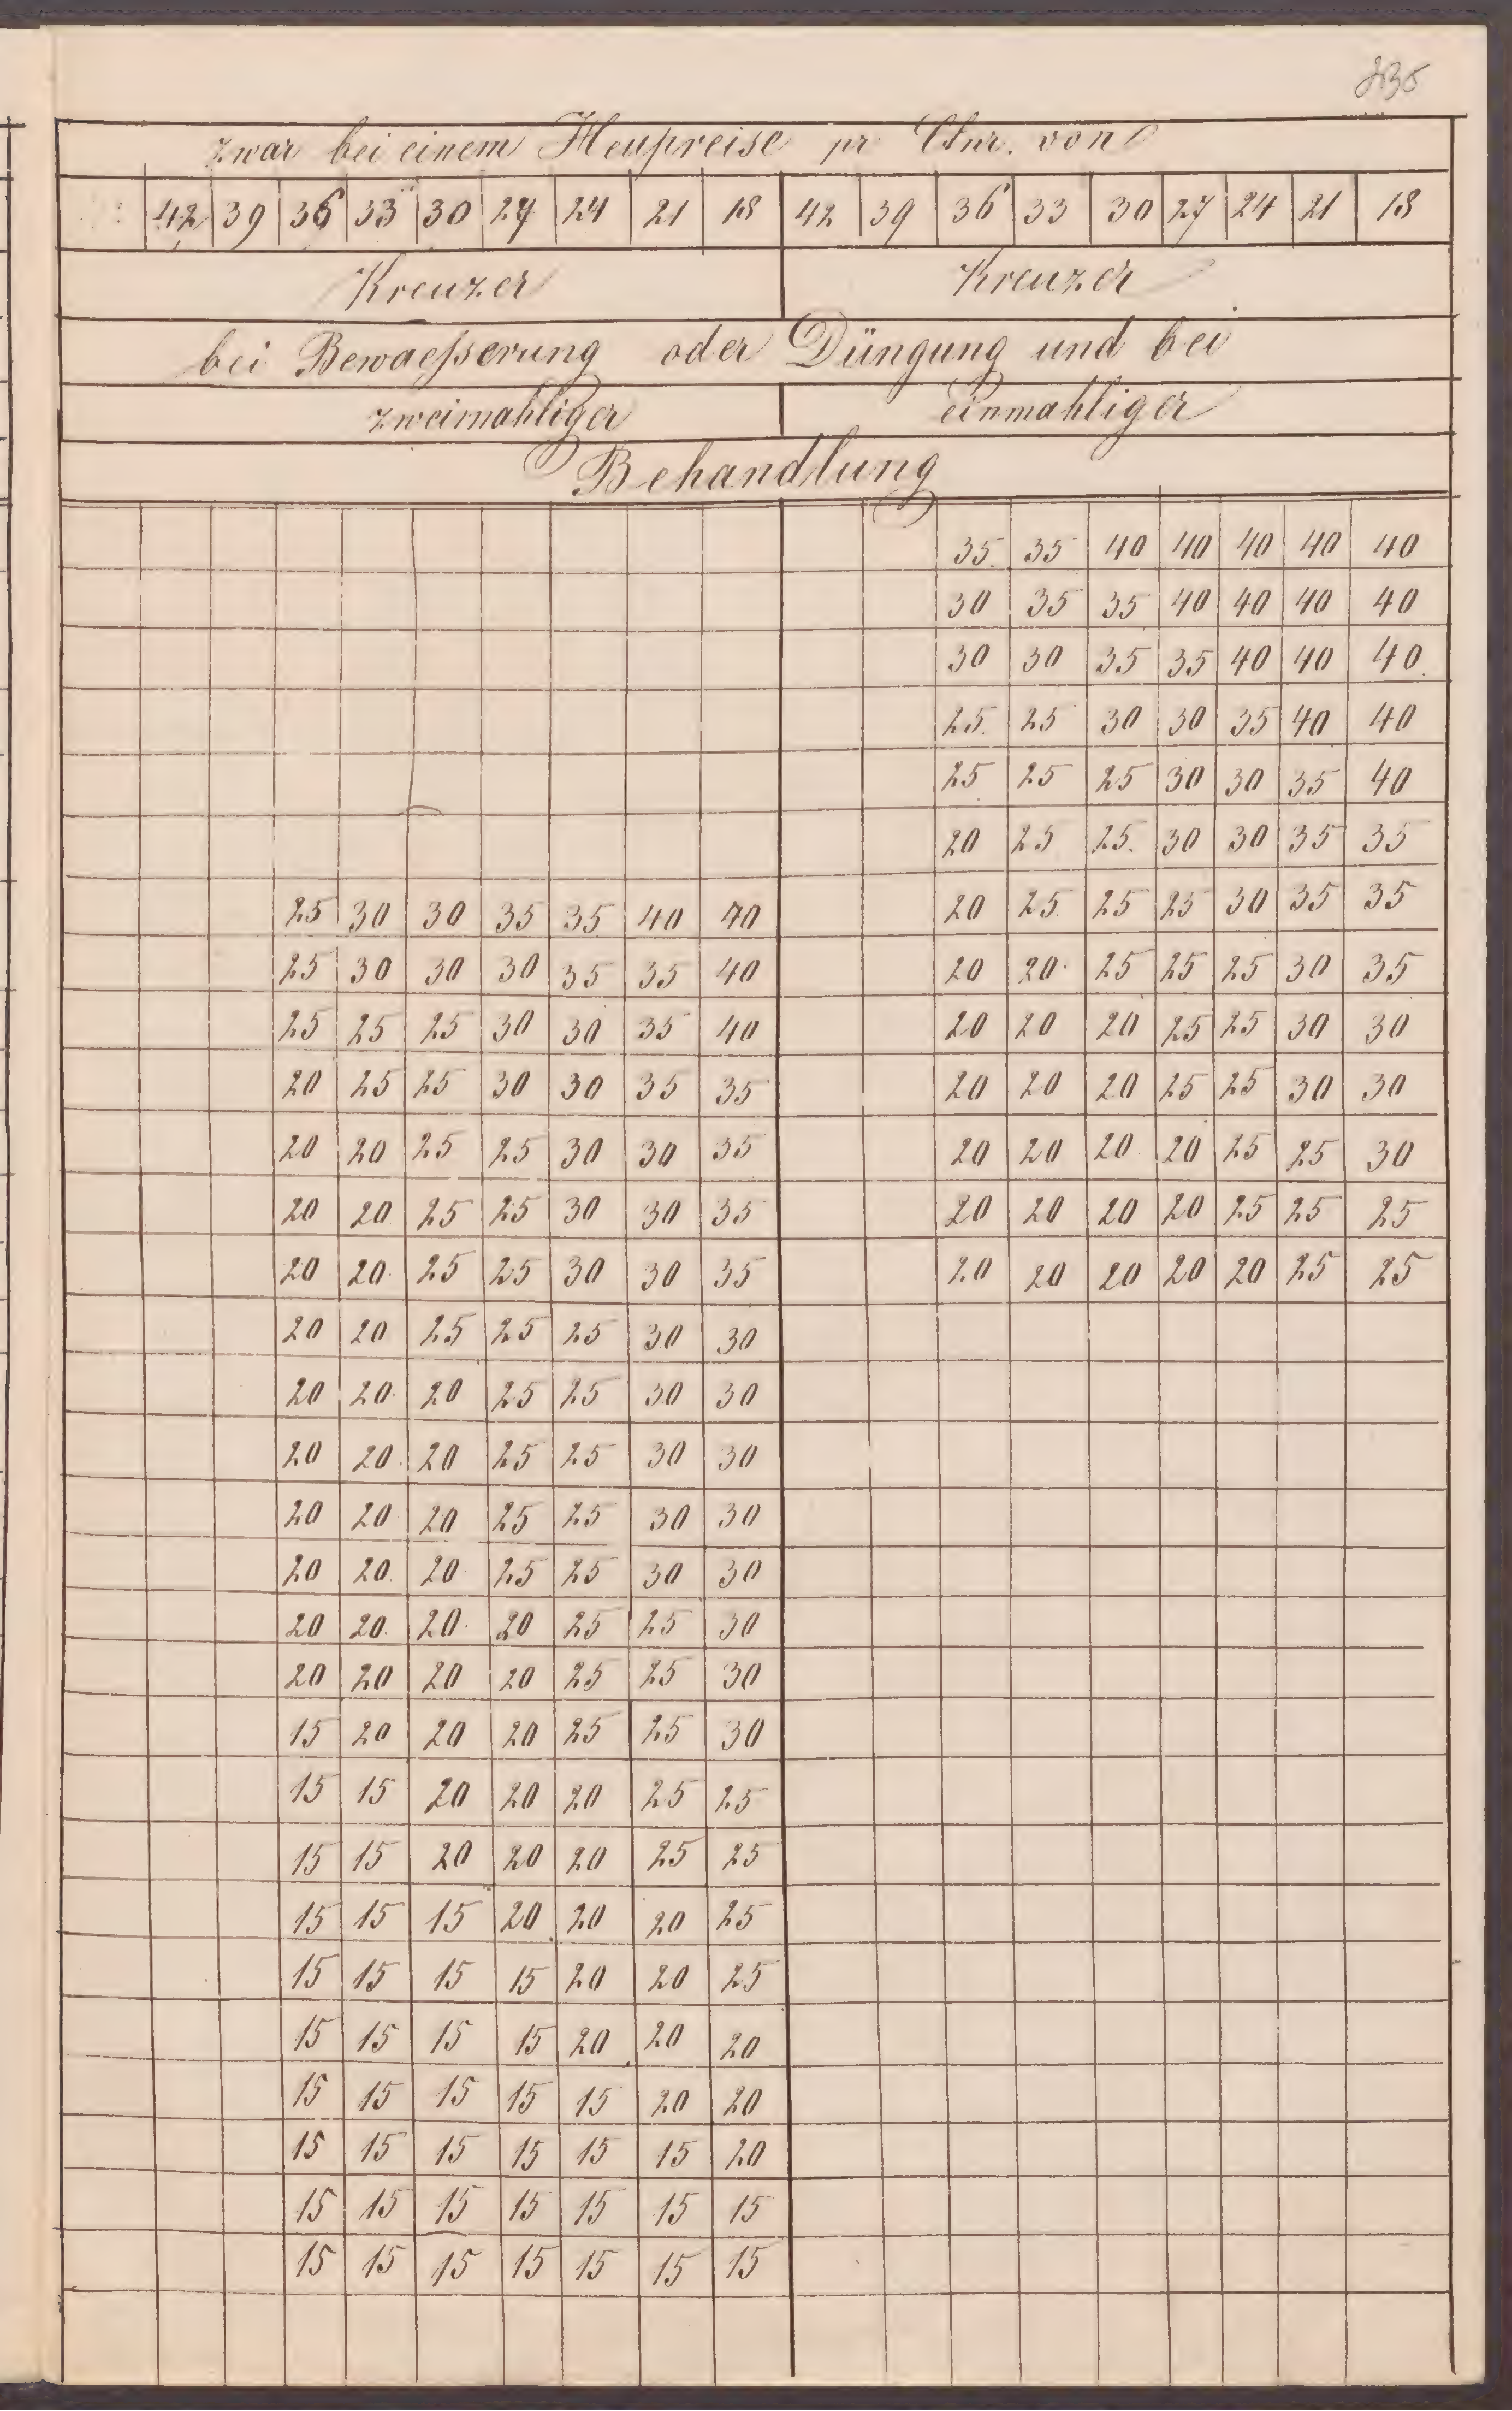 zwar bei einem Heupreise pr Ctnr. von
42 39 36 33 30 27 24 21 18 42 39 36 33 30 27 24 21 18
Kreuzer Kreuzer
bei Bewaeſserung oder Düngung und bei
zweimahliger einmahliger
Behandlung
35 35 40 40 40 40 40
30 35 35 40 40 40 40
30 30 35 35 40 40 40
25 25 30 30 35 40 40
25 25 25 30 30 35 40
20 25 25 30 30 35 35
25 30 30 35 35 40 40 20 25 25 25 30 35 35
25 30 30 30 35 35 40 20 20 25 25 25 30 35
25 25 25 30 30 35 40 20 20 20 25 25 30 30
20 25 25 30 30 35 35 20 20 20 25 25 30 30
20 20 25 25 30 30 35 20 20 20 20 25 25 30
20 20 25 25 30 30 35 20 20 20 20 25 25 25
20 20 25 25 30 30 35 20 20 20 20 20 25 25
20 20 25 25 25 30 30
20 20 20 25 25 30 30
20 20 20 25 25 30 30
20 20 20 25 25 30 30
20 20 20 25 25 30 30
20 20 20 20 25 25 30
20 20 20 20 25 25 30
15 20 20 20 25 25 30
15 15 20 20 20 25 25
15 15 20 20 20 25 25
15 15 15 20 20 20 25
15 15 15 15 20 20 25
15 15 15 15 20 20 20
15 15 15 15 15 20 20
15 15 15 15 15 15 20
15 15 15 15 15 15 15
15 15 15 15 15 15 15